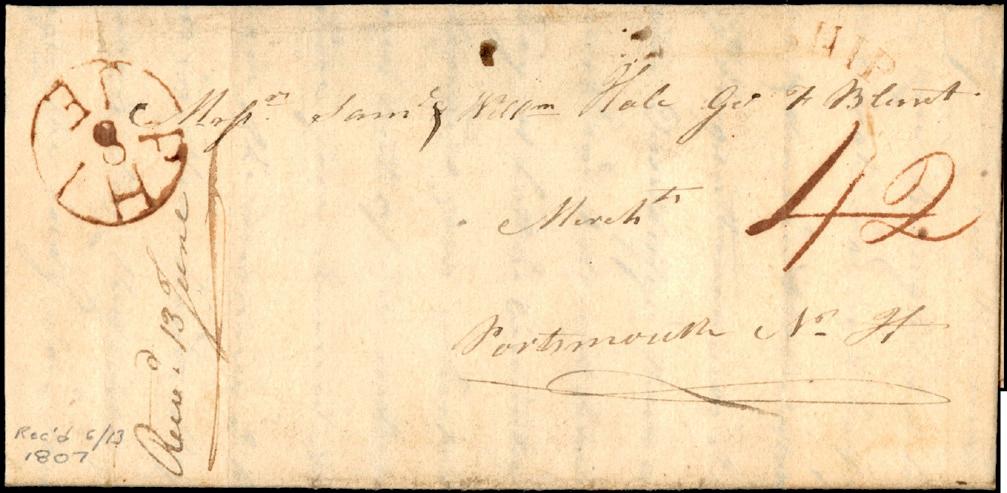 SHIP
Mess.rs Sam.l & Will.m Hale Geo F Blunt
42
Merch.ts
Portsmouth N. H
Recd. 13 June
Rec'd 6/13
1807